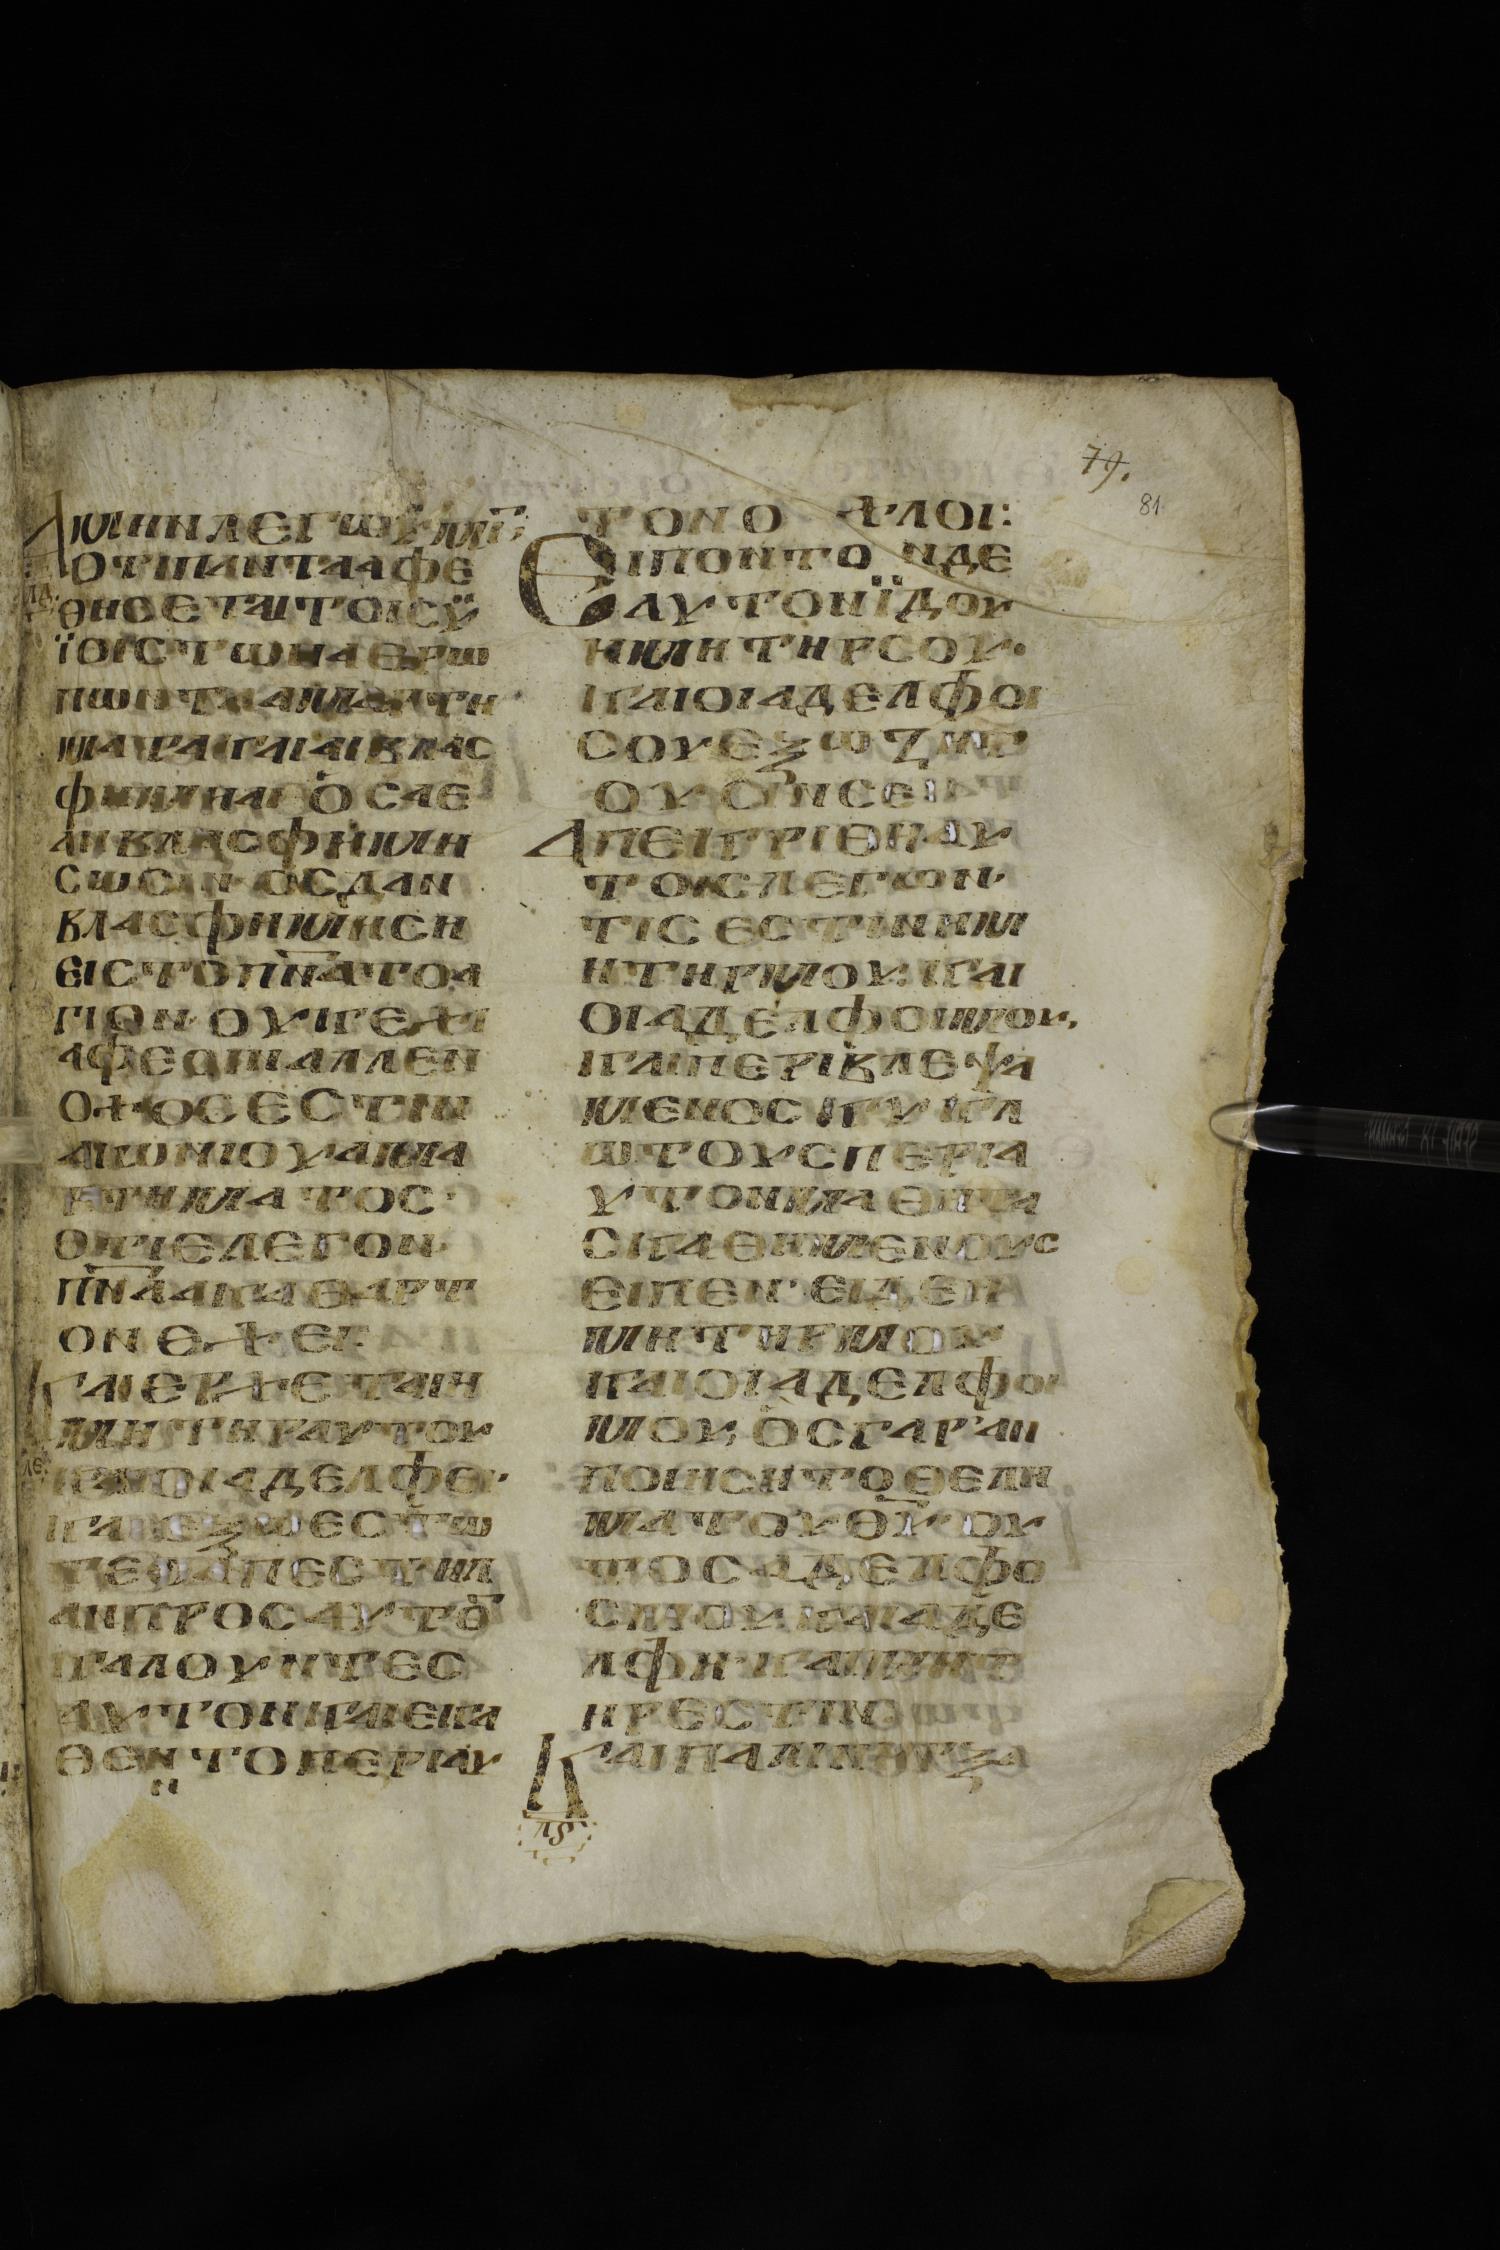 79.
81
ΑΜΗΝΛΕΓΩΫΜΙ̅
ΟΤΙΠΑΝΤΑΑΦΕ
ΘΗΣΕΤΑΙΤΟΙϹΫ
ΪΟΙϹΤΩΝΑΕΡΩ
ΠΩΝΤΑΑΜΑΡΤΗ
ΜΑΤΑΚΑΙΑΙΒΛΑϹ
ΦΗΜΗΑΙΟϹΑΕ
ΑΝΒΛΑϹΦΗΜΗ
ϹΩϹΙΝ·ΟϹΔΑΝ
ΒΛΑϹΦΗΜΗϹΗ
ΕΙϹΤΟΠ̅Ν̅Α̅ΤΟΑ
ΓΙΟΝ·ΟΥΚΕΧΙ
ΑΦΕϹΙΝΑΛΛΕΝ
ΟΧΟϹΕϹΤΙΝ
ΑΙΩΝΙΟΥΑΜΑ
ΡΤΗΜΑΤΟϹ·
ΟΤΙΕΛΕΓΟΝ·
Π̅Ν̅Α̅ΑΚΑΘΑΡΤ
ΟΝΕΧΕΙ·
ΚΑΙΕΡΧΕΤΑΙΗ
ΜΗΤΗΡΑΥΤΟΥ
ΛΕ
ΚΑΙΟΙΑΔΕΛΦΕΙ·
ΚΑΙΕΞΩΕϹΤΩ
ΤΕϹΑΠΕϹΤΙΛ
ΑΝΠΡΟϹΑΥΤΟ̅
ΚΑΛΟΥΝΤΕϹ
ΑΥΤΟΝΚΑΙΕΚΑ
ΘΕΝΤΟΠΕΡΙΑΥ
ΤΟΝΟΧΛΟΙ:
ΕΙΠΟΝΤΟΝΔΕ
ΑΥΤΟΝΪΔΟΥ
ΗΜΗΤΗΡϹΟΥ·
ΚΑΙΟΙΑΔΕΛΦΟΙ
ϹΟΥΕΞΩΖΗΤ
ΟΥϹΙΝϹΕ
ΑΠΕΚΡΙΘΗΑΥ
ΤΟΙϹΛΕΓΩΝ·
ΤΙϹΕϹΤΙΝΗΜ
ΗΤΗΡΜΟΥ·ΚΑΙ
ΟΙΑΔΕΛΦΟΙΜΟΥ,
ΚΑΙΠΕΡΙΒΛΕΨΑ
ΜΕΝΟϹΚΥΚΛ
ΩΤΟΥϹΠΕΡΙΑ
ΥΤΟΝΜΑΘΗΤΑ
ϹΚΑΘΗΜΕΝΟΥϹ
ΕΙΠΕΝ·ΕΙΔΕΗ
ΜΗΤΗΡΜΟΥ
ΚΑΙΟΙΑΔΕΛΦΟΙ
ΜΟΥ·ΟϹΓΑΡΑΝ
ΠΟΙΗϹΗΤΟΘΕΛΗ
ΜΑΤΟΥΘ̅Υ̅·ΟΥ
ΤΟϹΑΔΕΛΦΟ
ϹΜΟΥ·ΚΑΙΑΔΕ
ΛΦΗ·ΚΑΙΜΗΤ
ΗΡΕϹΤΙΝ
ΚΑΙΠΑΛΙΝΗΡΞΑ
Λϛ